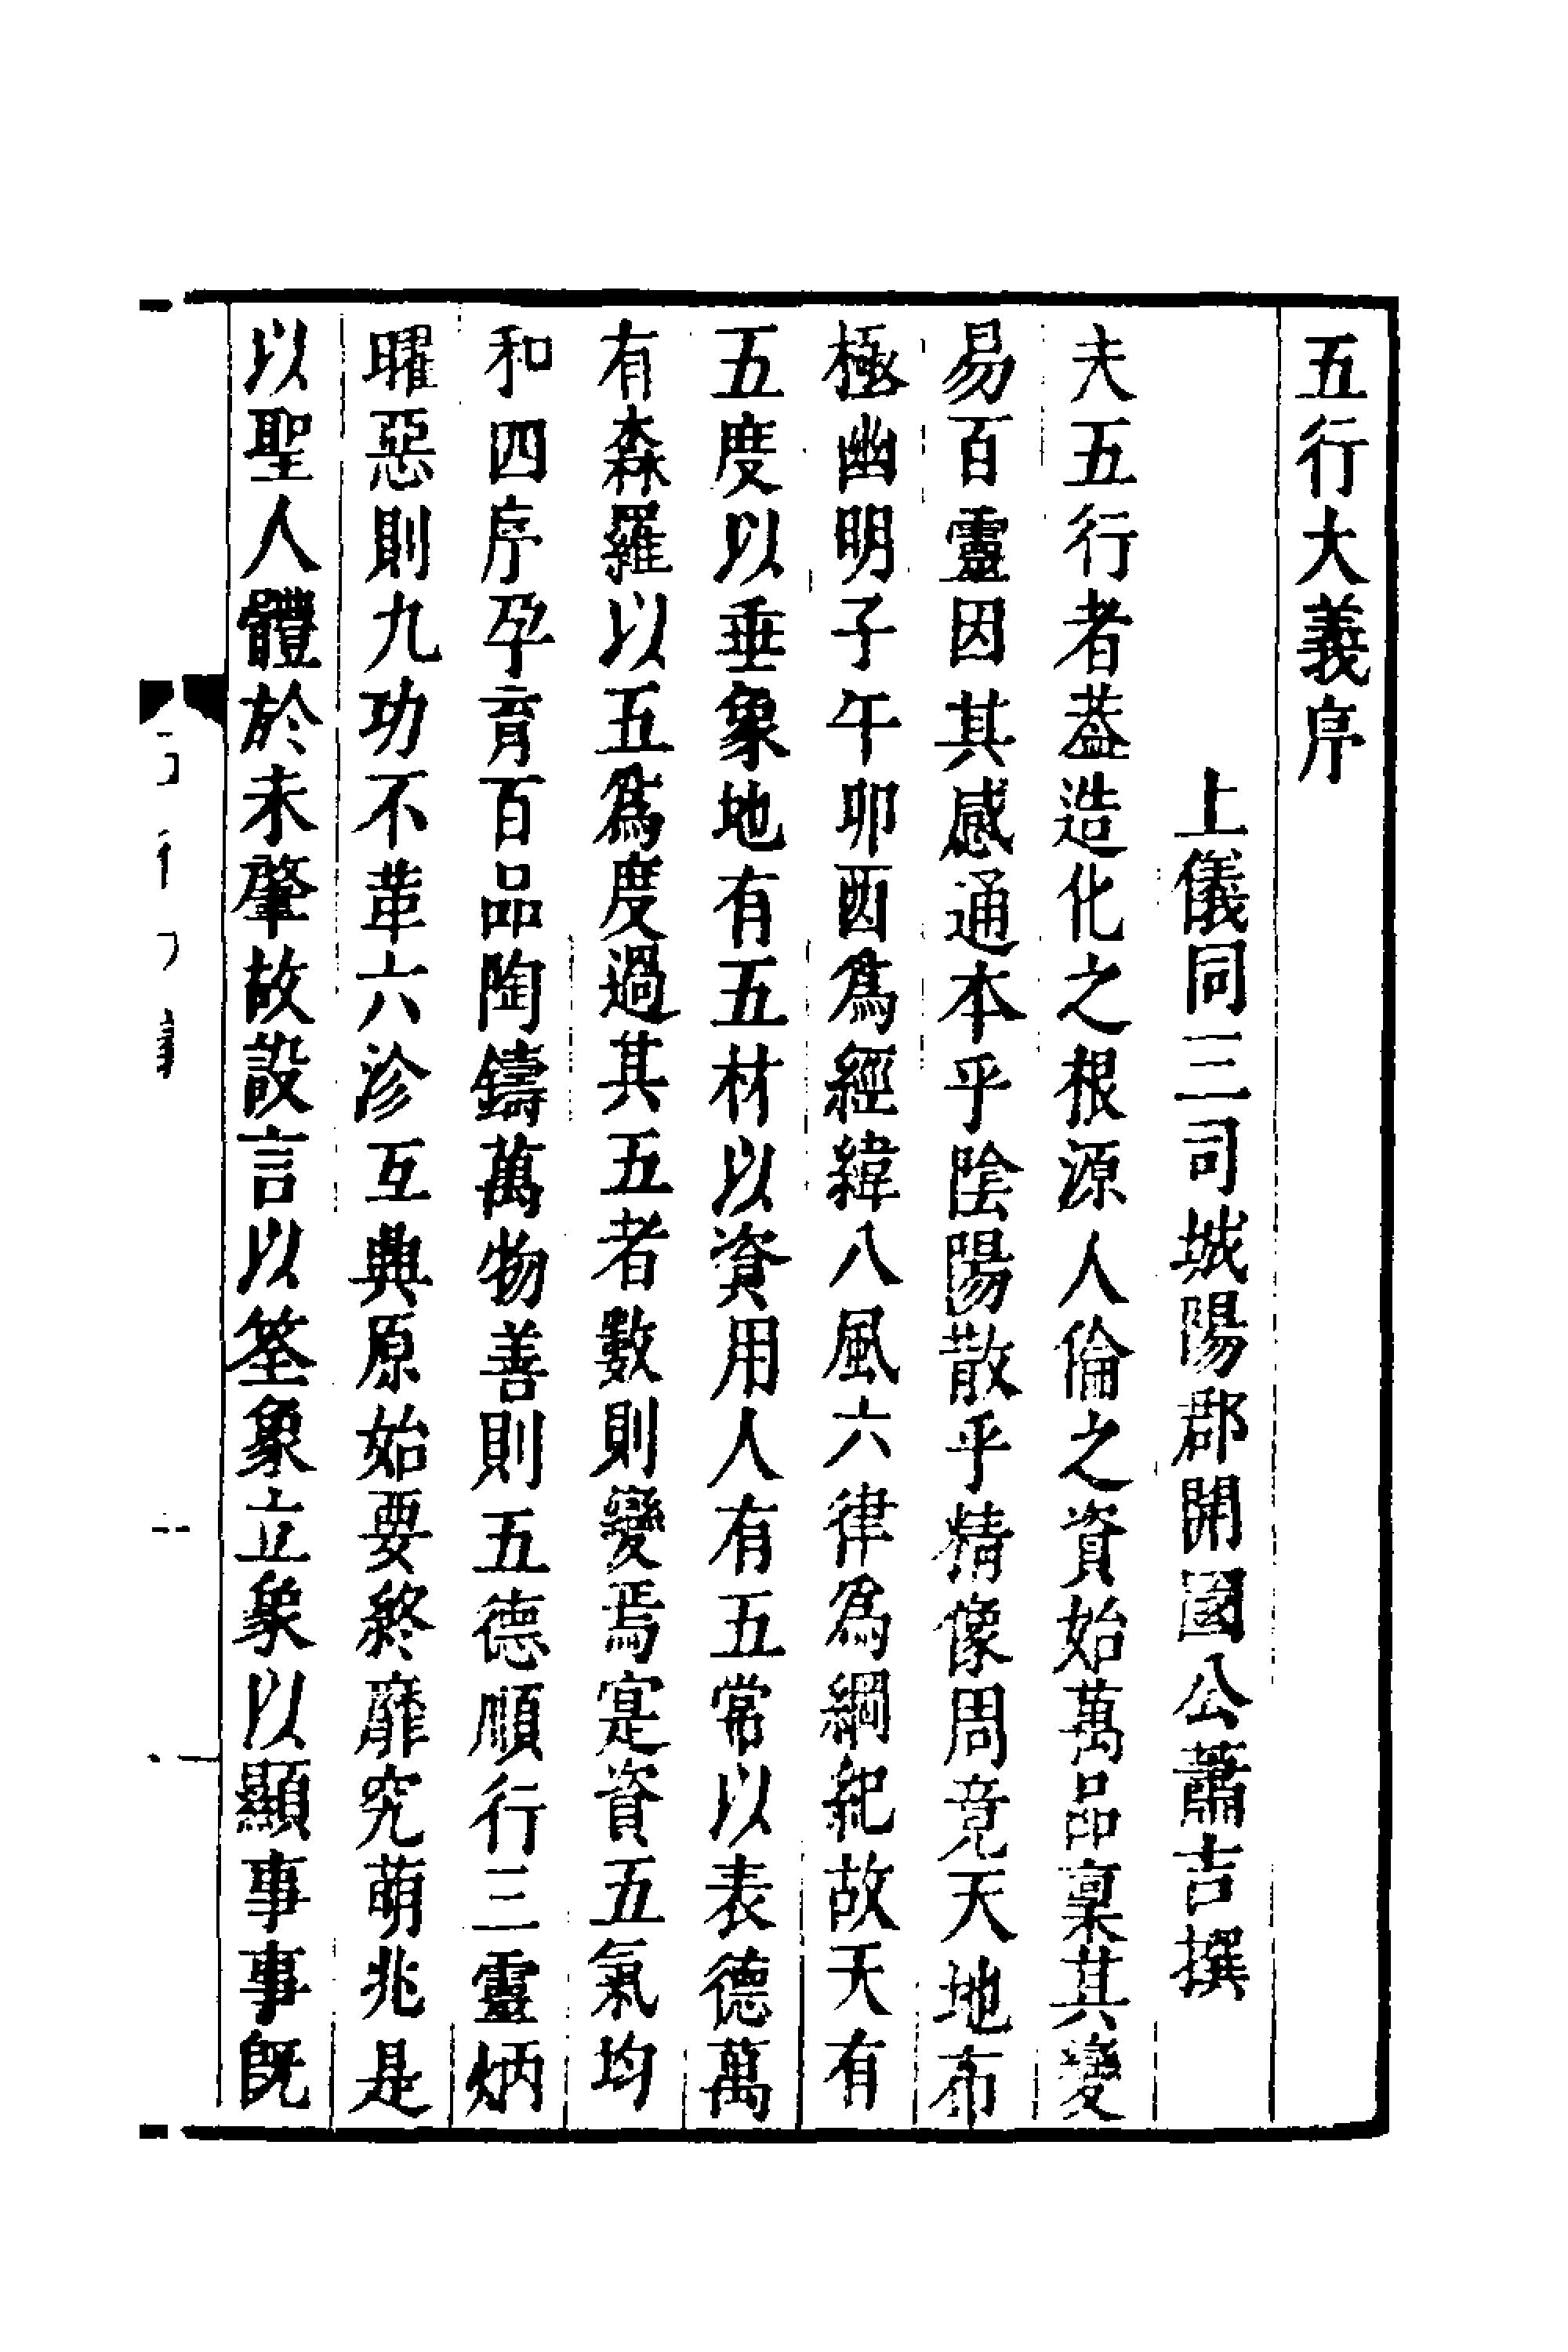 五行大義序
上儀同三司城陽郡開國公蕭吉撰
夫五行者蓋造化之根源人倫之資始萬品稟其變
易百靈因其感通本乎陰陽散乎精像周竟天地布
極幽明子午卯酉爲經緯八風六律爲綱紀故天有
五度以垂象地有五材以資用人有五常以表德萬
有森羅以五爲度過其五者數則變焉寔資五氣均
和四序孕育百品陶鑄萬物善則五德順行三靈炳
曜惡則九功不革六沴互典原始要終靡究萌兆是
以聖人體於未肇故設言以筌象立象以顯事事既